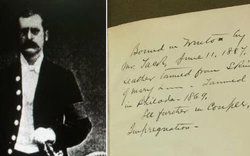 Bound in Trenton by
Mr. Taeck, June 11, 1887.
Leather tanned from Skin
of Mary L—. Tanned
in Philada. 1869.
See further in Couper,
Impregnation.